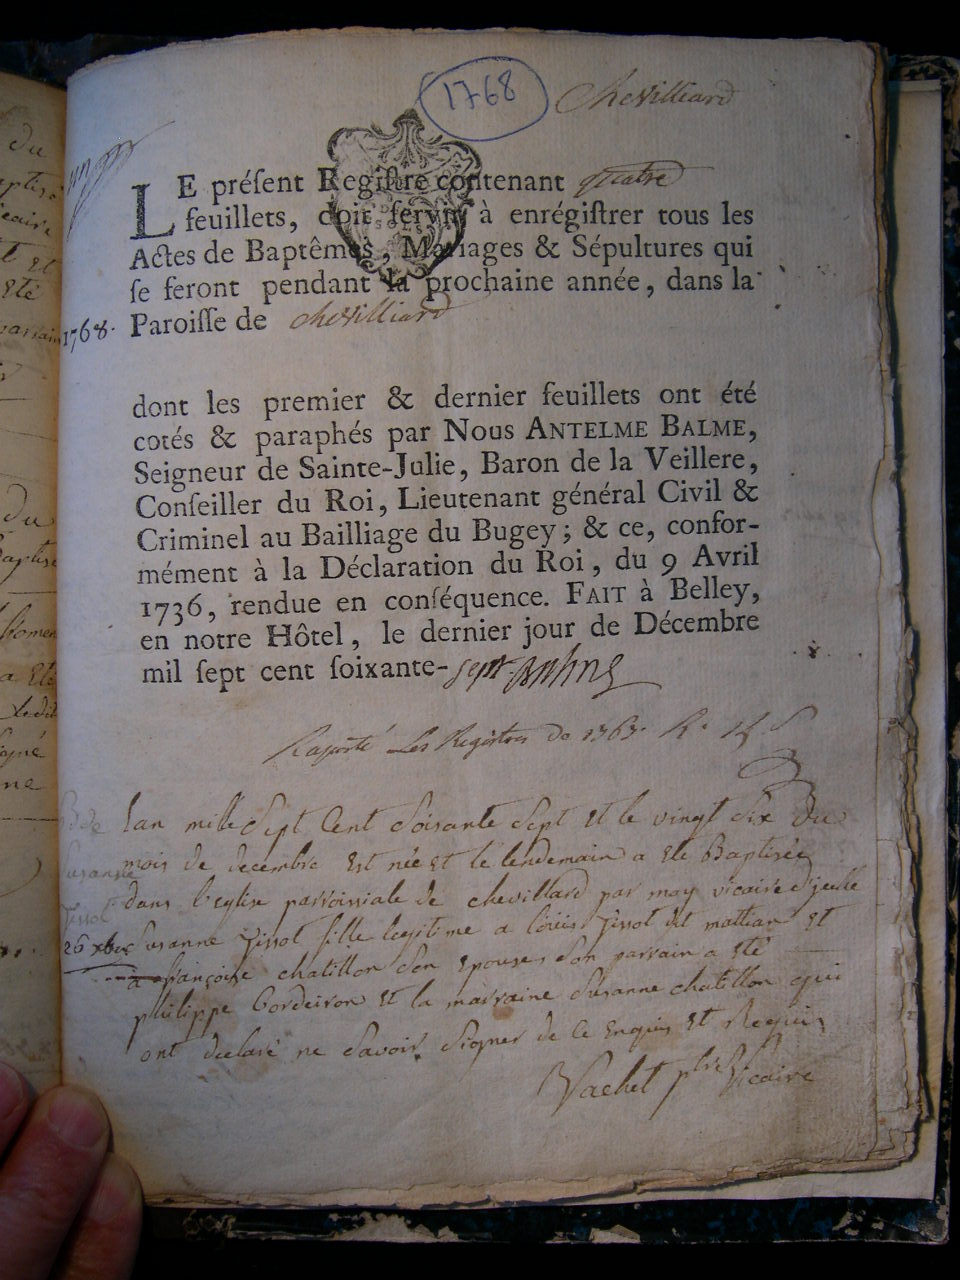 1768
Chevilliard
LE préſent Regiſtre contenant quatre
feuillets, doit ſervir à enrégiſtrer tous les
Actes de Baptêmes, Mariages & Sépultures qui
ſe feront pendant la prochaine année, dans la
1768. Paroiſſe de chevilliard
dont les premier & dernier feuillets ont été
cotés & paraphés par Nous ANTELME BALME,
Seigneur de Sainte-Julie, Baron de la Veillere,
Conſeiller du Roi, Lieutenant général Civil &
Criminel au Bailliage du Bugey; & ce, confor-
mément à la Déclaration du Roi, du 9 Avril
1736, rendue en conſéquence. FAIT à Belley,
en notre Hôtel, le dernier jour de Décembre
mil ſept cent ſoixante-sept
Les Registres de
lan mille Sept Cent Soisante Sept Et le vingt Six Du
mois de decembre Est née et le lendemain a ete Baptisée
dans l'eglise parroissiale de chevillard par moy vicaire
26 xbre Susanne Jissot fille legitime a loüis Jissot dit mathan Et
a françoise chatillon Son Epouse, Son parrain a Eté
philippe bordeiron Et la marraine Susanne chatillon qui
ont declaré ne Savoir Signer de Ce Enquis Et Requis
Vachet ptre Vicaire